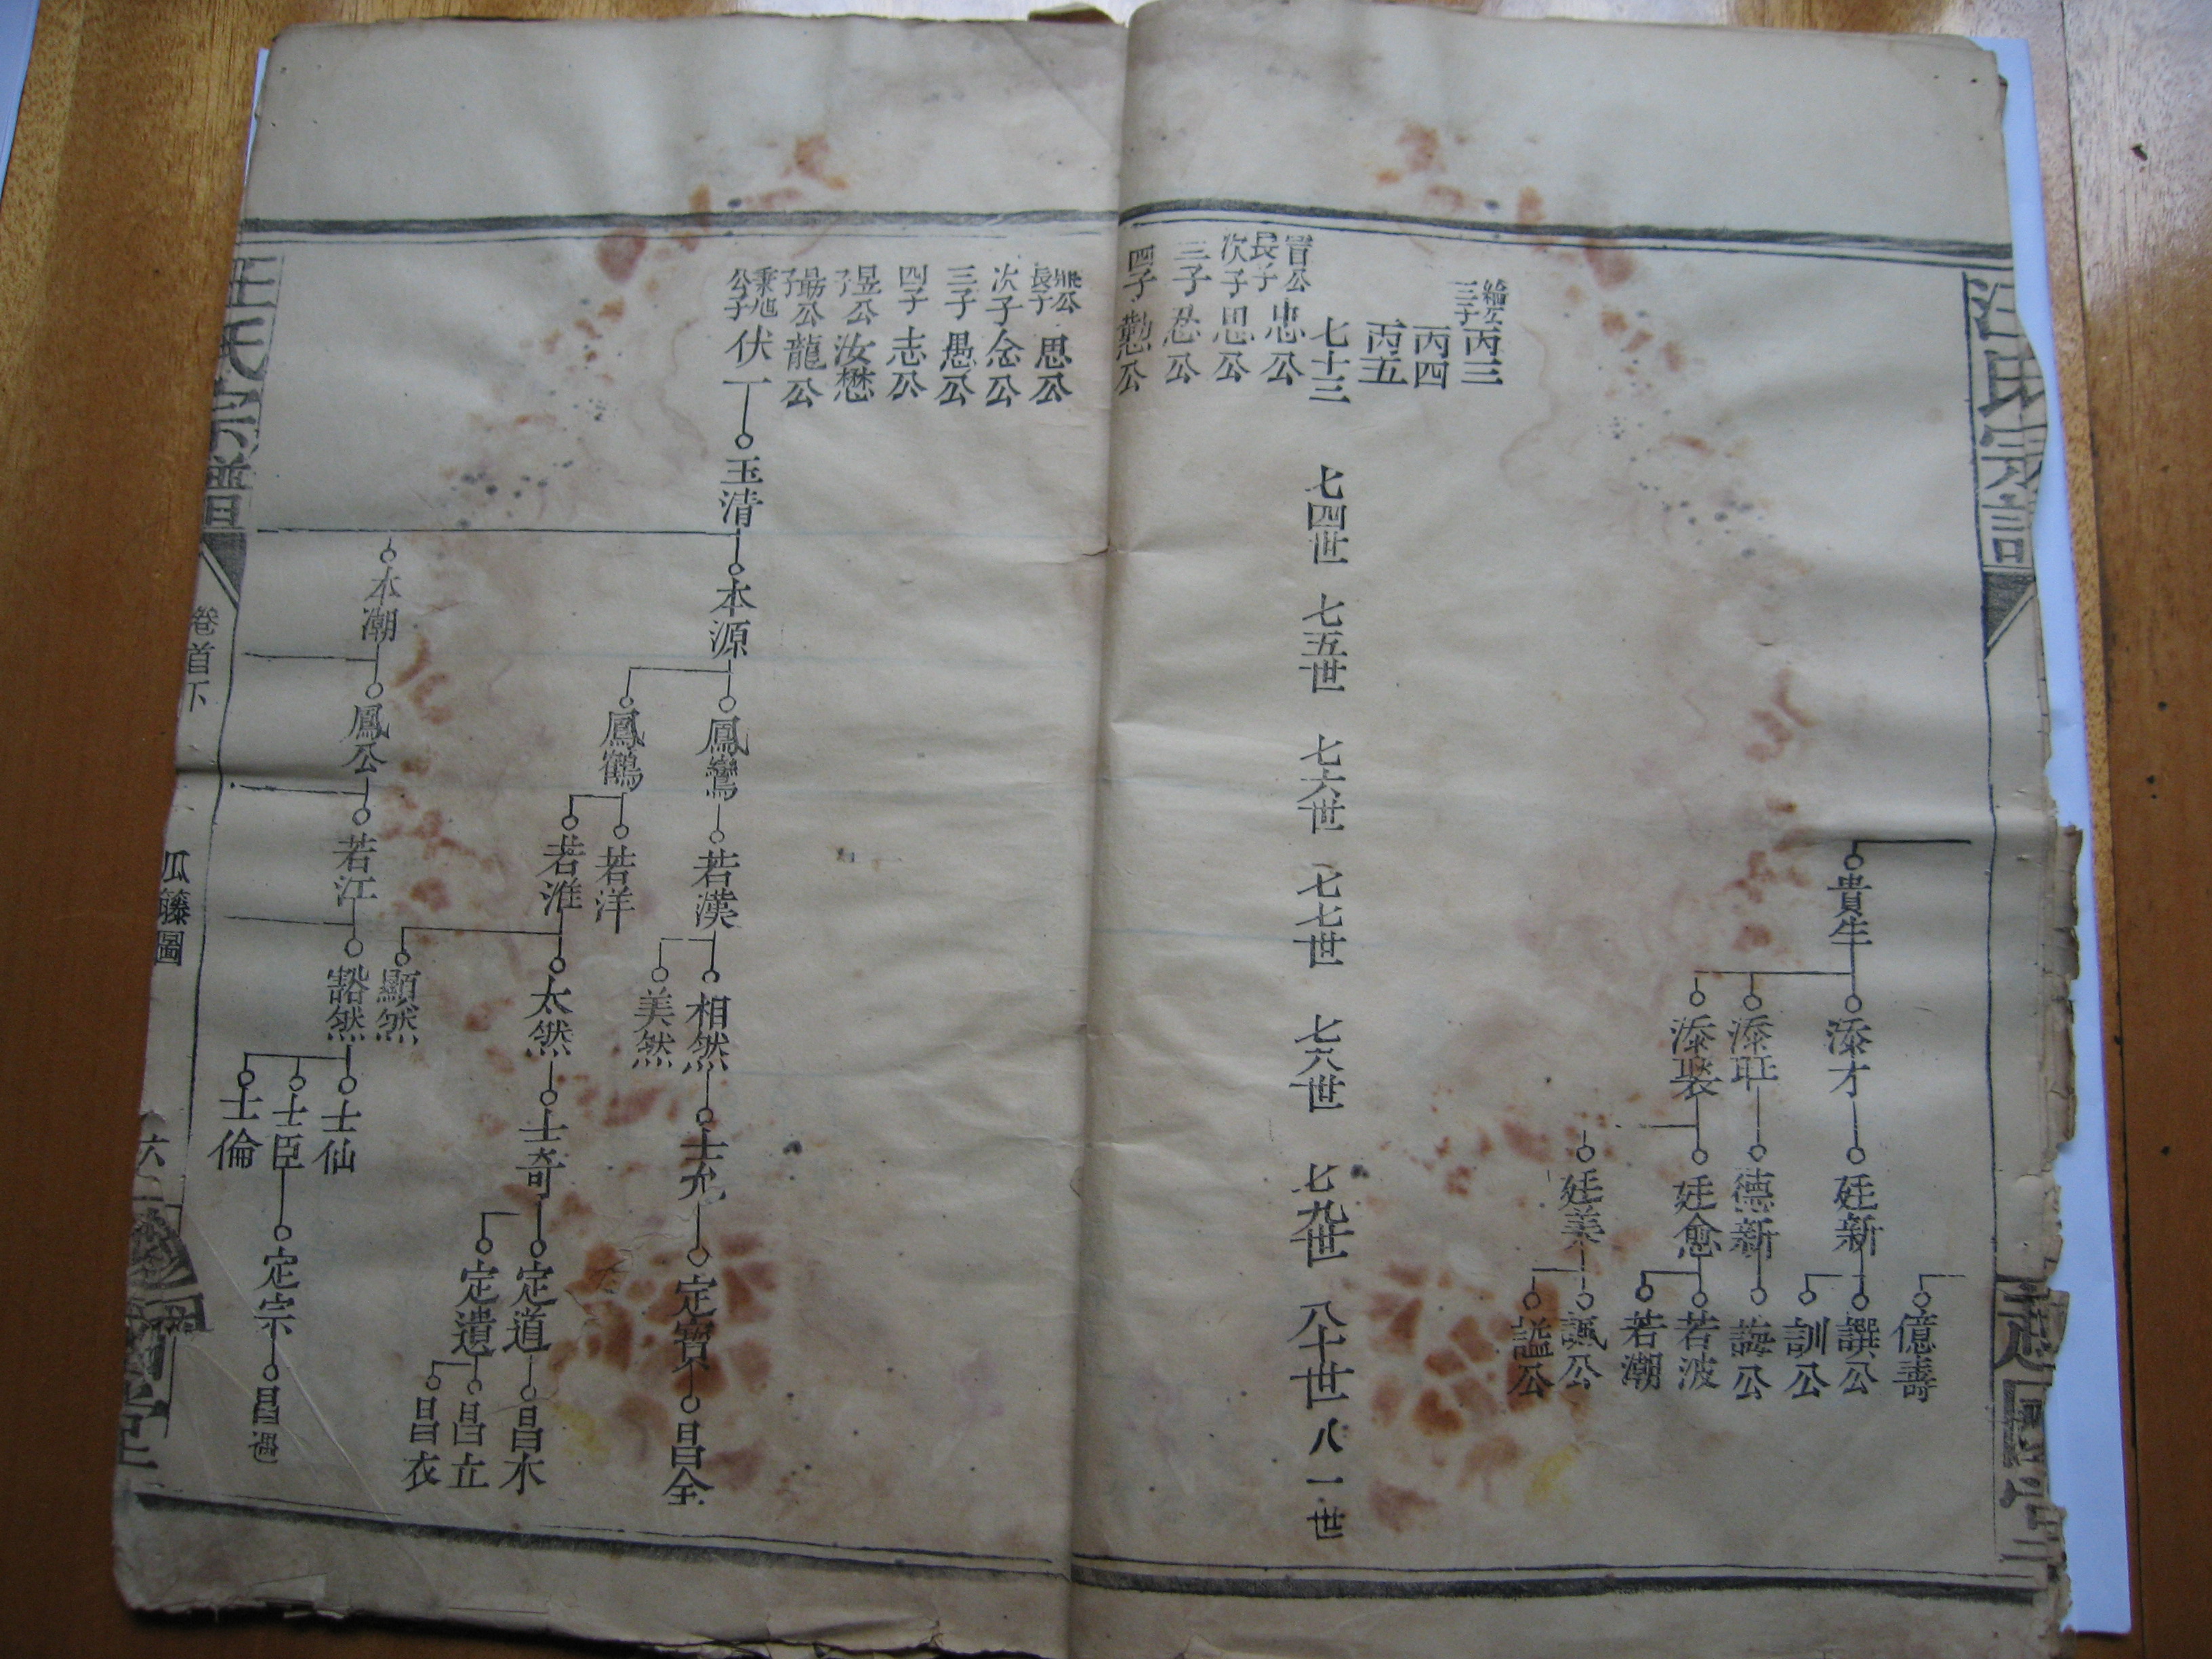 汪氏宗譜
億壽
貴生
添才
廷新
譔公
訓公
德新
誨公
廷愈
若波
若潮
廷美
諷公
謚公
三子
丙三
丙四
丙五
七十三
七四世
七五世
七六世
七七世
七八世
七九世
八十世
八一世
長子
忠公
次子
思公
三子
公
四子
懃公
長子
思公
次子
念公
三子
愚公
四子
志公
昱公子
汝懋
勗公子
龍公
公子
伏一
玉清
本源
鳳鸞
若漢
相然
士允
定寶
昌全
美然
鳳鶴
若洋
若淮
太然
士奇
定道
昌木
定遺
昌立
昌衣
顯然
本潮
鳳公
若江
豁然
士仙
士臣
定宗
昌遇
士倫
汪氏宗譜
卷首下
瓜籐圖
六二